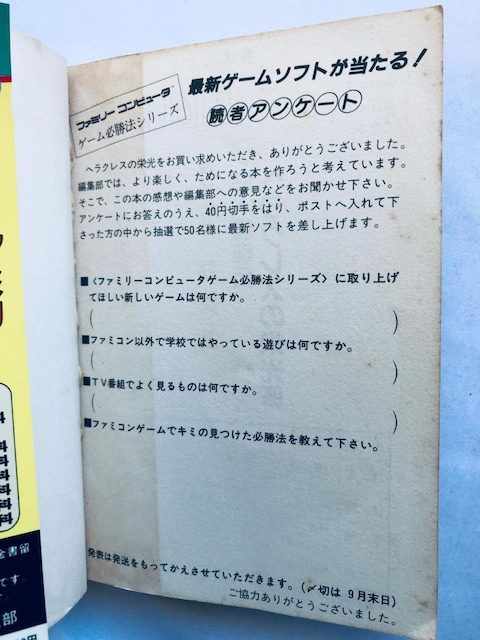 ファミリーコンピュータ
ゲーム必勝法シリーズ
最新ゲームソフトが当たる!
読者アンケート
ヘラクレスの栄光をお買い求めいただき、ありがとうございました。
編集部では、より楽しく、ためになる本を作ろうと考えています。
そこで、この本の感想や編集部への意見などをお聞かせ下さい。
アンケートにお答えのうえ、40円切手をはり、ポストへ入れて下
さった方の中から抽選で50名様に最新ソフトを差し上げます。
■〈ファミリーコンピュータゲーム必勝法シリーズ〉に取り上げ
てほしい新しいゲームは何ですか。
( )
■ファミコン以外で学校ではやっている遊びは何ですか。
( )
■TV番組でよく見るものは何ですか。
( )
■ファミコンゲームでキミの見つけた必勝法を教えて下さい。
発表は発送をもってかえさせていただきます。(〆切は9月末日)
ご協力ありがとうございました。
金書留
です
部